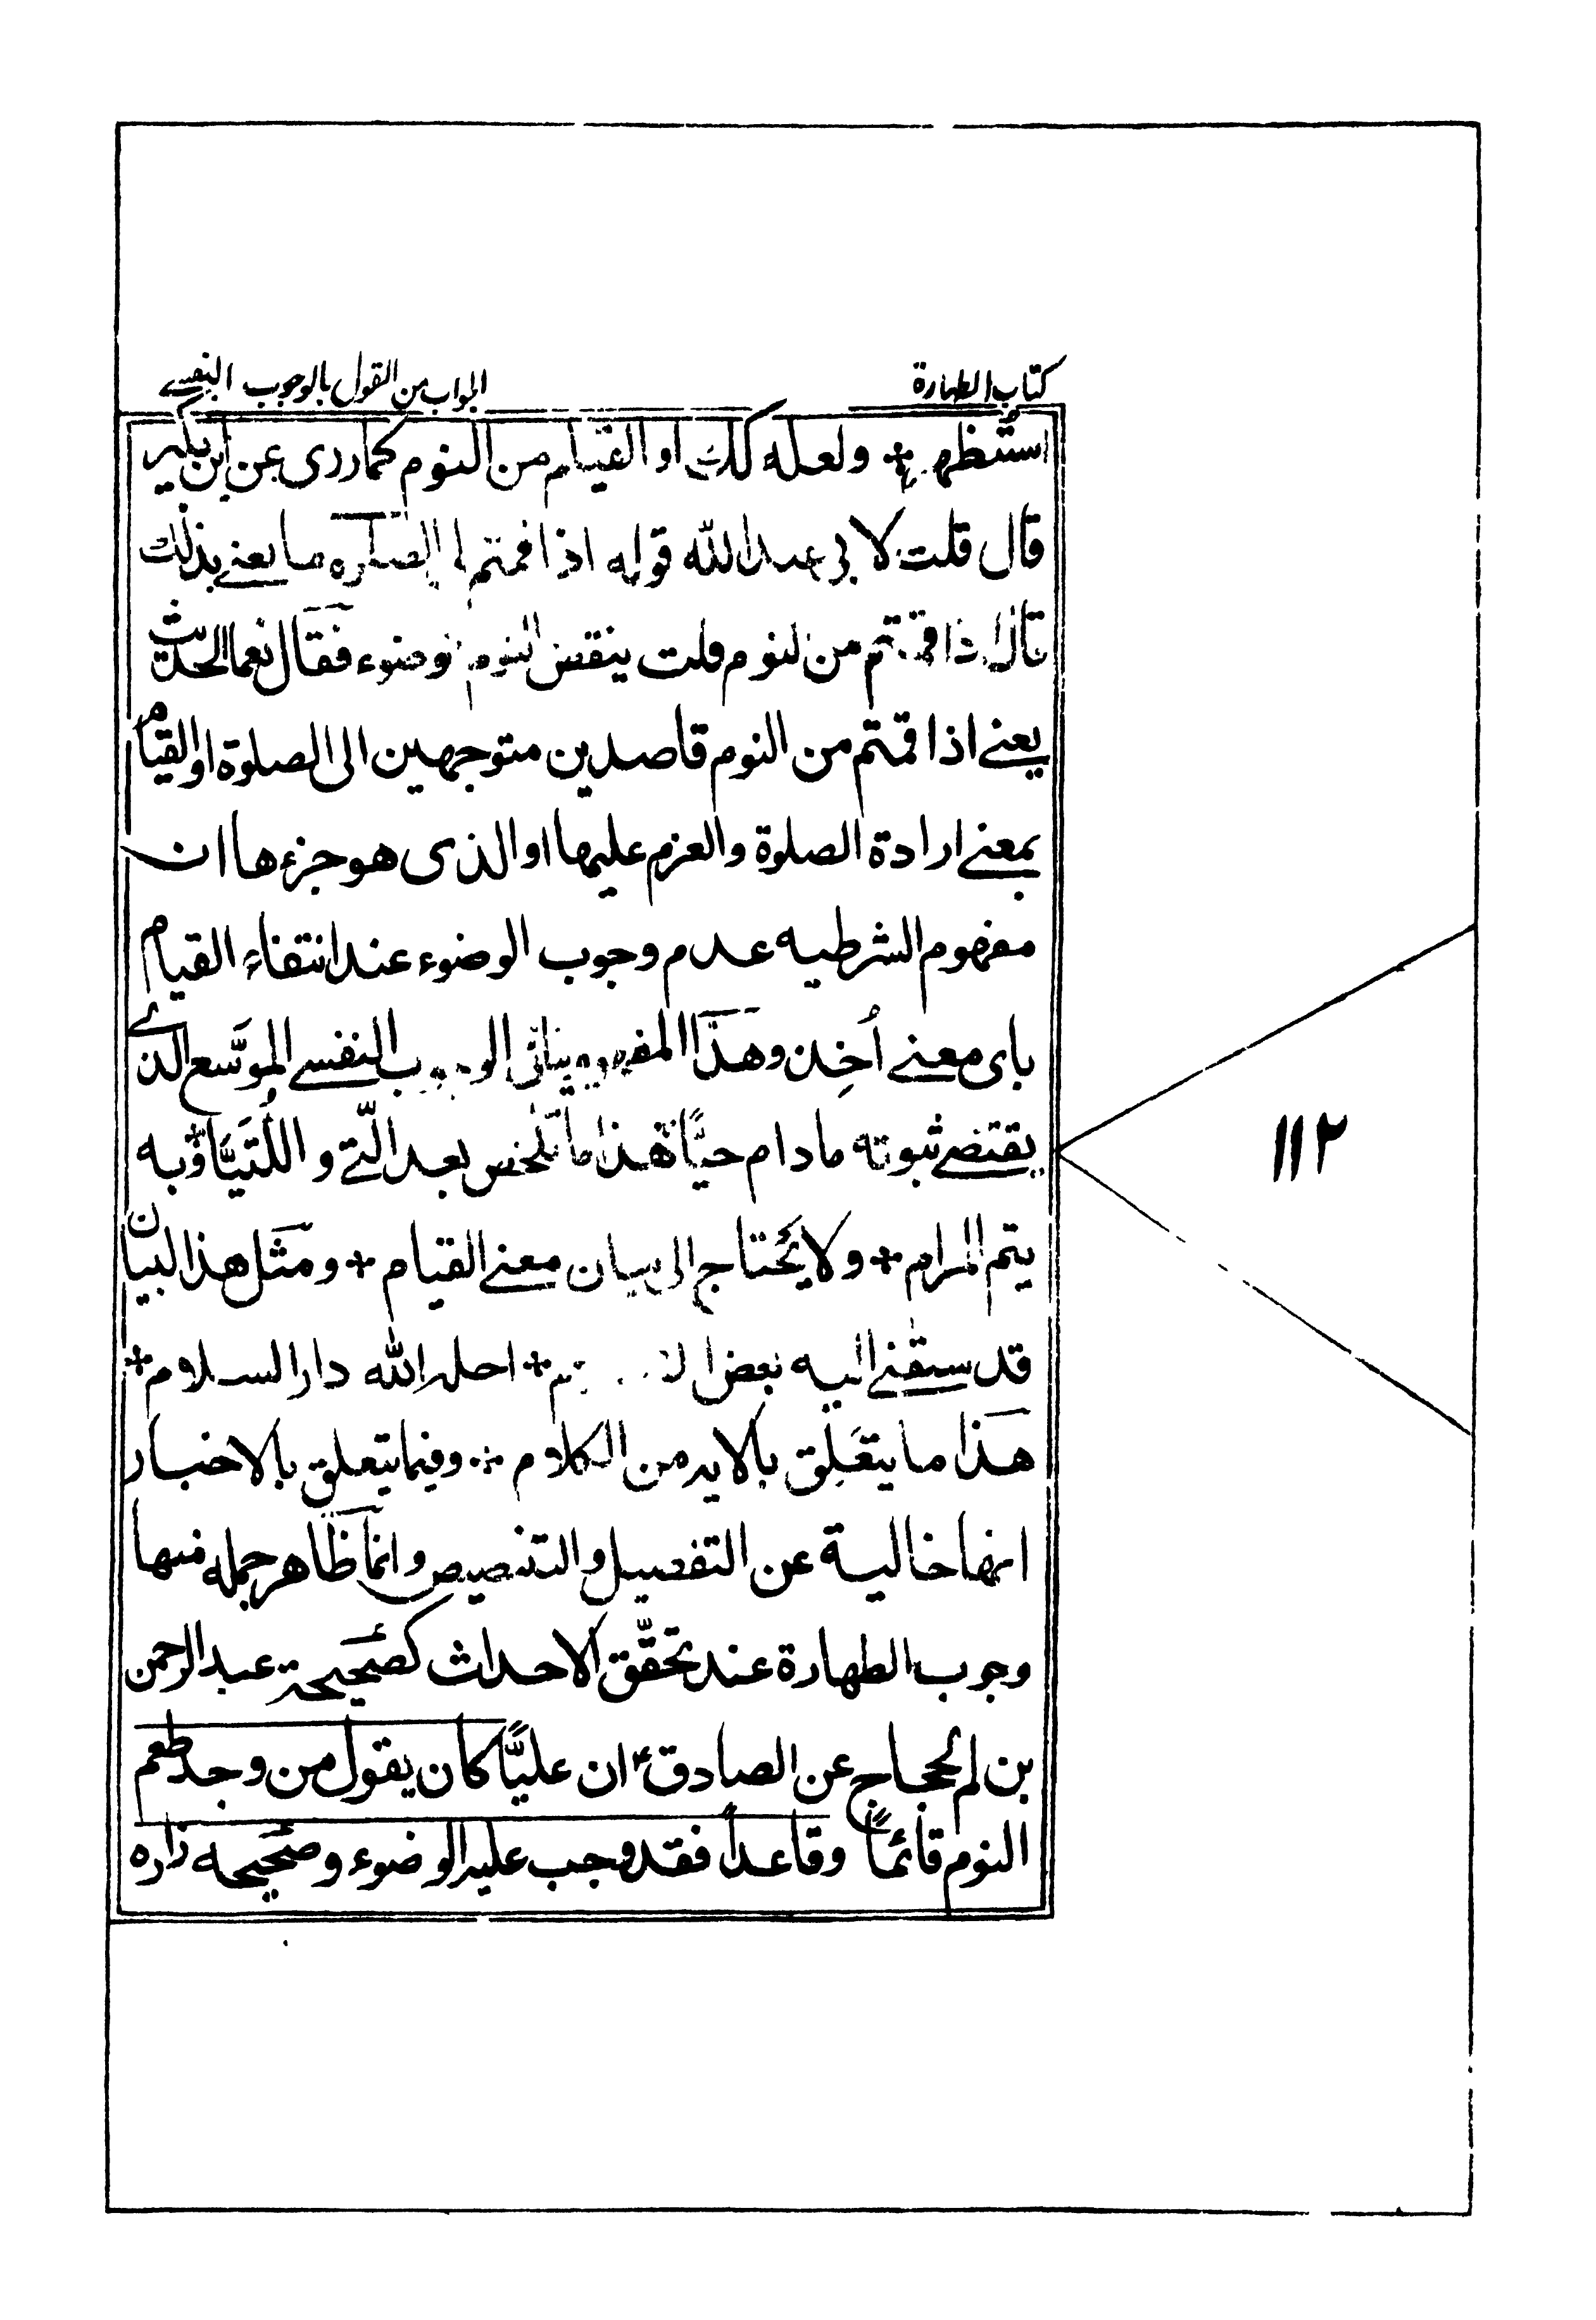 كتاب الطهارة
الجواب من القول بالوجوب النفسے
استظهر ولعله كلك او القيام من النوم كماروى عن ابن بكير
قال قلت لابى عبدالله قوله اذا قمتم الى الصلوة ما يعنے بذلك
قال اذا قمتم من النوم قلت ينقض النوم الوضوء فقال نعم الحديث
يعنے اذا قمتم من النوم قاصدين متوجهين الى الصلوة او القيام
بمعنے ارادة الصلوة والعزم عليها او الذى هو جزءها ان
مفهوم الشرطيه عدم وجوب الوضوء عند انتفاء القيام
باى معنے أخِذ وهَذا المفهوم ينافى الوجوب النفسے الموسَّع الذے
يقتضے ثبوته مادام حيًّا هذا ما تلخص بعد الّتے و اللُتَيَّا وبه
يتم المرام ❊ ولا يَحتاج الى بيان معنے القيام ❊ ومَثَل هذا البيان
قد سبقنے اليه بعض ❊ احله الله دار السلام ❊
هَذا ما يتعَلِق بالايه من الكلام ❊ وفيما يتعلق بالاخبار
انها خالية عن التفصيل والتنصيص وانما ظاهر جمله منها
وجوب الطهارة عند تحقّق الاحداث كصَحيحة عبد الرحمن
بن الحجاج عن الصادق ع ان عليًّا كان يقول من وجد طعم
النوم قائمًا وقاعداً فقد وجب عليه الوضوء وصَحيحه زراره
١١٢